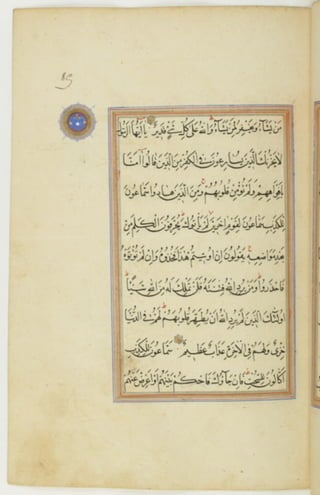 ٨٩
من يشاء ويغفر لمن يشاء والله على كل شيء قدير يا أيها الرسول
لا يحزنك الذين يسارعون في الكفر من الذين قالوا آمنا
بأفواههم ولم تؤمن قلوبهم ومن الذين هادوا سماعون
للكذب سماعون لقوم آخرين لم يأتوك يحرفون الكلم من
بعد مواضعه يقولون إن أوتيتم هذا فخذوه وإن لم تؤتوه
فاحذروا ومن يرد الله فتنته فلن تملك له من الله شيئا
أولئك الذين لم يرد الله أن يطهر قلوبهم لهم في الدنيا
خزي ولهم في الآخرة عذاب عظيم سماعون للكذب
أكالون للسحت فإن جاؤوك فاحكم بينهم أو أعرض عنهم